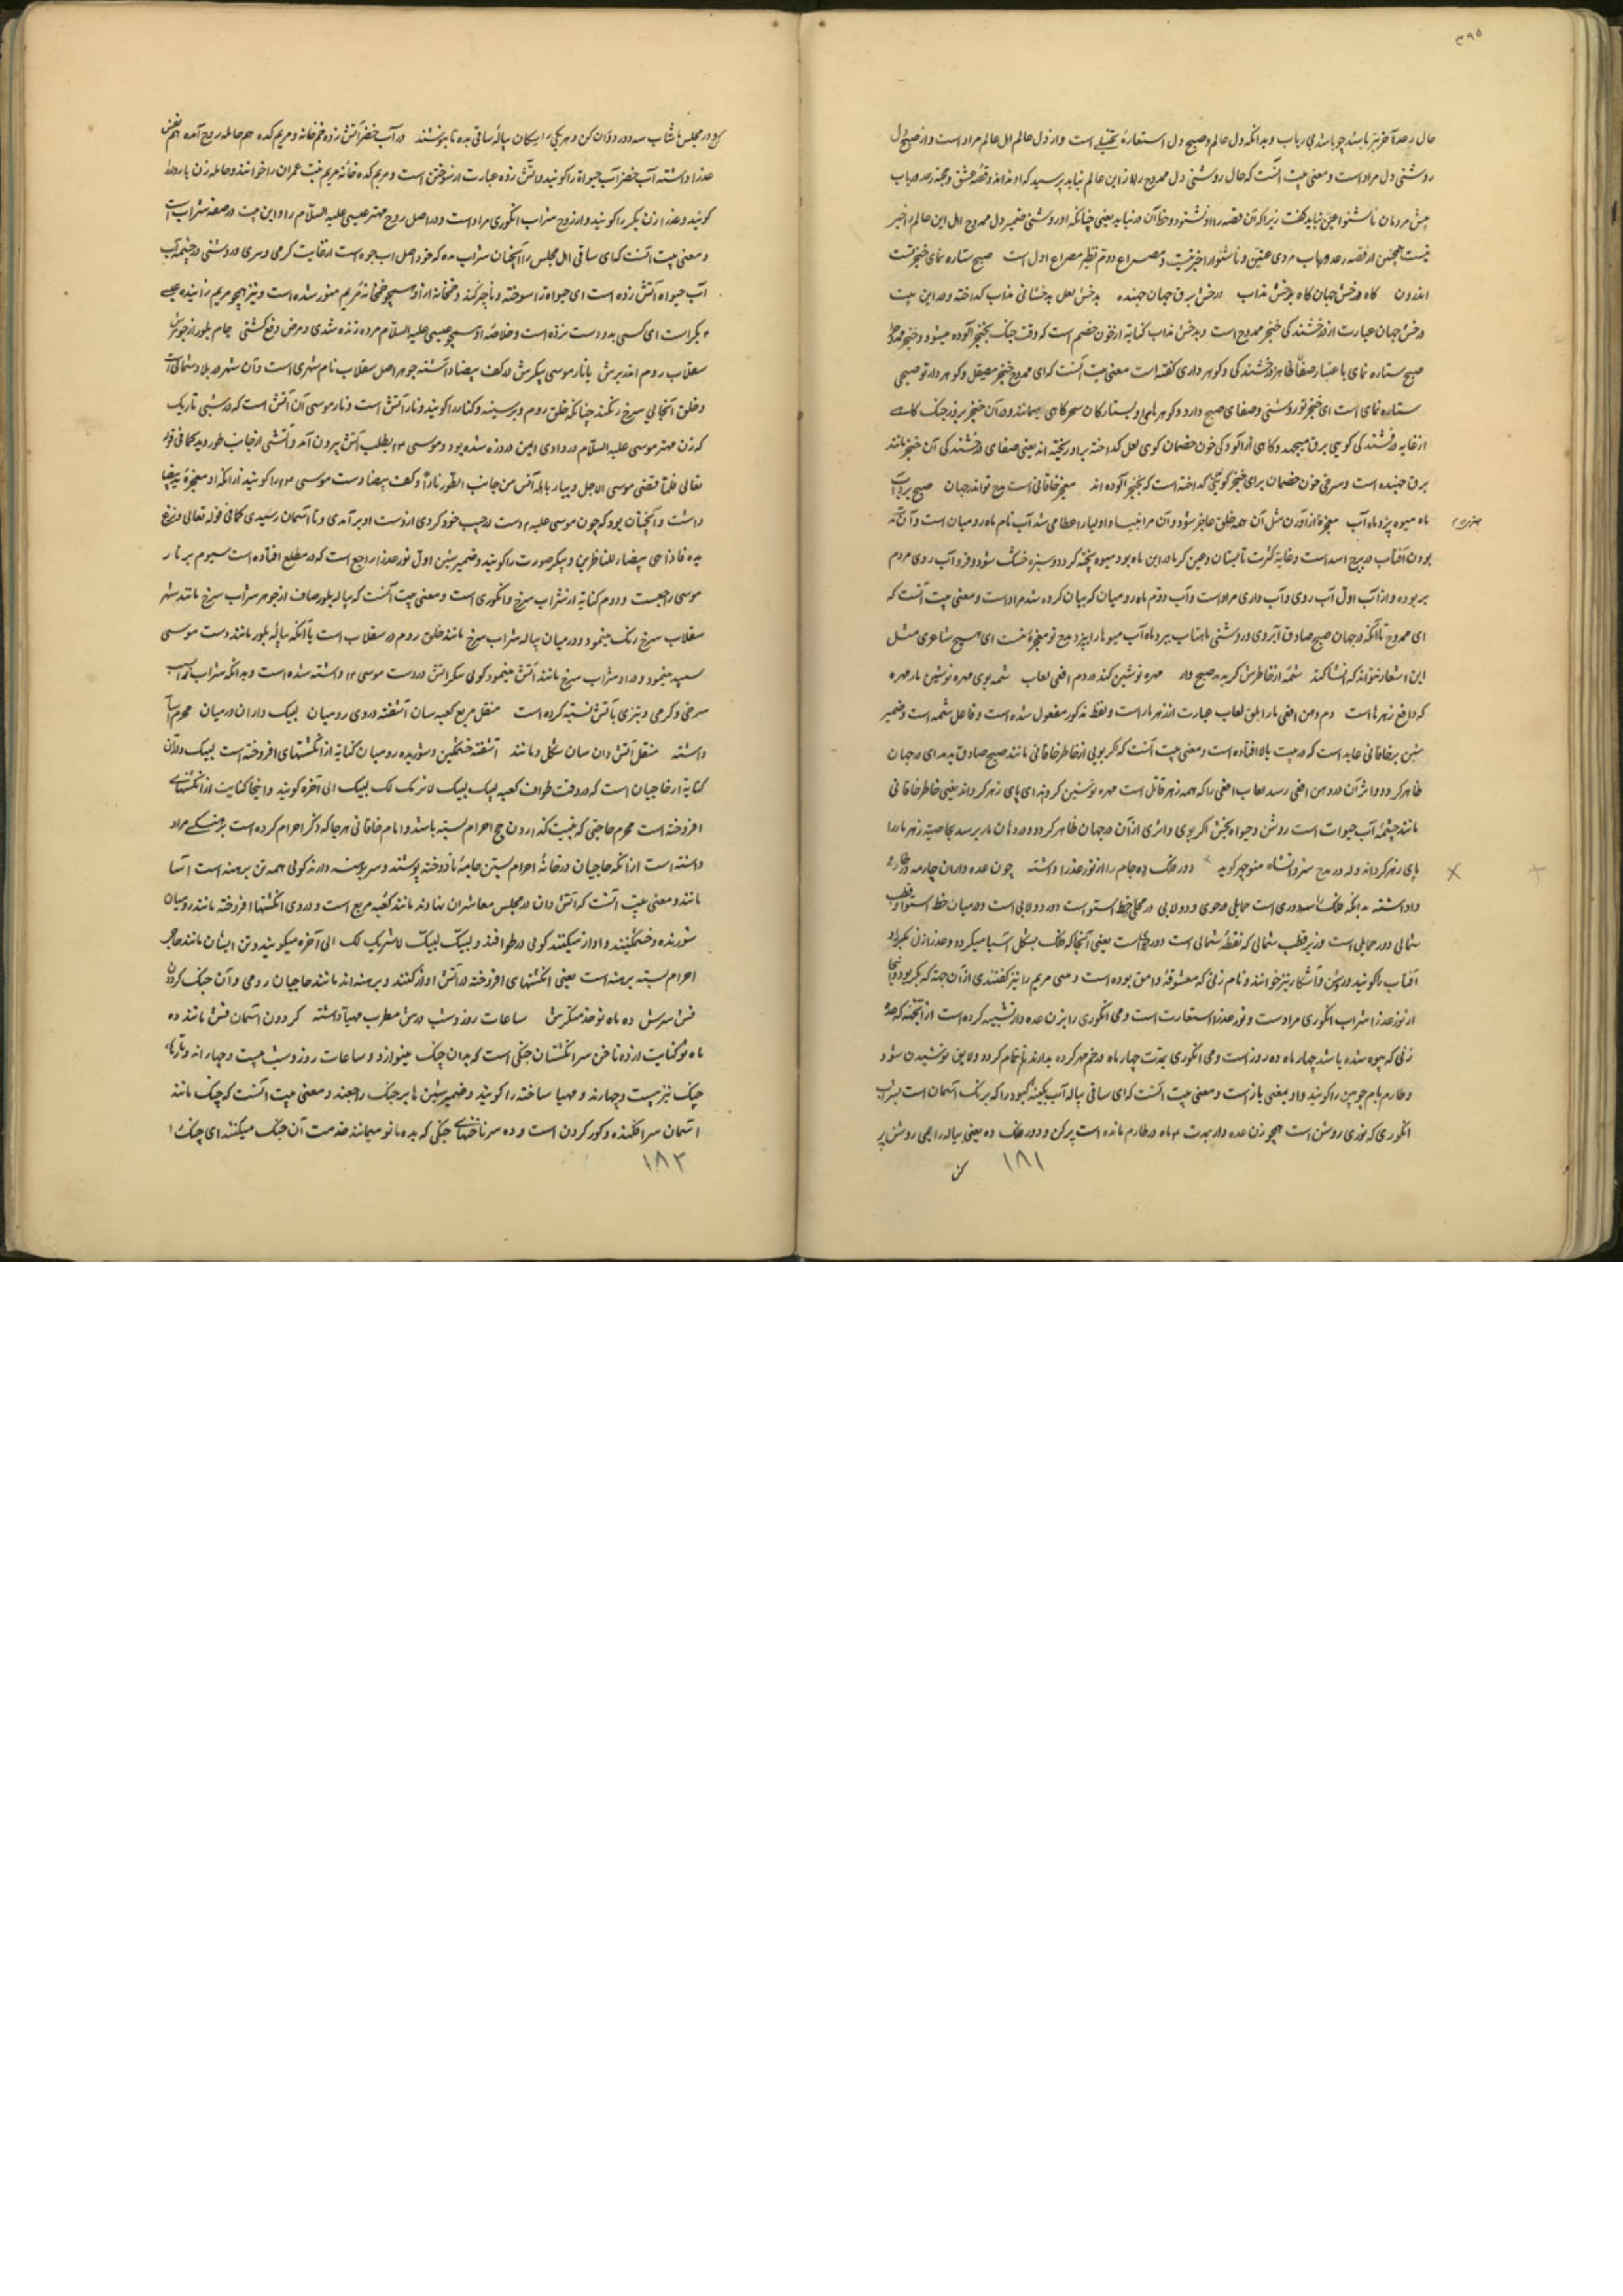 ۳۹۵
حال رعد آخر نیز باشد چو باشدی رباب و بدانکه دل عالم و صبح دل استعارهٔ تخییلی است و از دل عالم اهل عالم مراد است و از صبح دل
روشنی دل مراد است و معنی بیت آنست که حال روشنی دل ممدوح را از این عالم نباید پرسید که او نداند و قصهٔ عشق و محبت رعد و رباب
پیش مردمان ناشنوا عنین نباید گفت زیرا که آن قصه را او نشنود و حظ آن در نیابد یعنی چنانکه او روشنی ضمیر دل ممدوح اهل این عالم را خبر
نیست همچنین از قصه رعد و رباب مردی عنین و ناشنوا را خبر نیست و مصراع دوم نظیر مصراع اول است صبح ستاره نمای خنجر تست
اندرون گاه درخش جهان گاه بدخش مذاب درخش برق جهان جهنده بدخش لعل بدخشانی مذاب گداخته و در این بیت
درخش جهان عبارت از درخشندگی خنجر ممدوح است و بدخش مذاب کنایه از خون خصم است که وقت جنگ بخنجر آلوده میشود و خنجر ممدوح را
صبح ستاره نمای باعتبار صفائی و درخشندگی و گوهر داری گفته است معنی بیت آنست که ای ممدوح خنجر مصیقل و گوهردار تو صبحی
ستاره نمای است ای خنجر تو روشنی و صفای صبح دارد و گوهرهای او بستارگان سحرگاهی میمانند و در آن خنجر بروز جنگ گاهی
از غایه درخشندگی گویی برق میجهد و گاهی از آلودگی خون خصمان گویی لعل گداخته بر او ریخته اند یعنی صفای درخشندگی آن خنجر مانند
برق جهنده است و سرخی خون خصمان برای خنجر گویی گداخته است که بخنجر آلوده اند معجز خاقانی است مدح تو اندر جهان صبح برد آب
ماه میوه پزد ماه آب معجزه از آوردن مثل آن همه خلق عاجز شود و آن مر انبیا و اولیا را عطا می شد آب نام ماه رومیان است و آن
بودن آفتاب در برج اسد است و غایة کثرت تابستان و عین گرما در این ماه بود و میوه پخته گردد و سبزه خشک شود و فرو آب روی مردم
بربوده و از آب اول آب روی و آب داری مراد است و آب دوم ماه رومیان که بیان کرده شد مراد است و معنی بیت آنست که
ای ممدوح تا آنکه در جهان صبح صادق آبروی و روشنی ماهتاب ببرد و ماه آب میوها را بپزد مدح تو معجزهٔ منست ای هیچ شاعری مثل
این اشعار نتواند که انشا کند شمهٔ از خاطرش گر بدمد صبح وار مهره نوشین کند در دم افعی لعاب شمه بوی مهره نوشین مارمهره
که دافع زهرها است دم دهن افعی مار ابلق لعاب عبارت از زهر مار است و لفظ مذکور مفعول شده است و فاعل شمه است و ضمیر
شین بر خاقانی عاید است که در بیت بالا افتاده است و معنی بیت آنست که اگر بویی از خاطر خاقانی مانند صبح صادق بدمد ای در جهان
ظاهر گردد و اثر آن در دهن افعی رسد لعاب افعی را که همه زهر قاتل است مهره نوشین گرداند ای پای زهر گرداند یعنی خاطر خاقانی
مانند چشمهٔ آب حیوات است روشن و حیوة بخش اگر بوی و اثری از آن در جهان ظاهر گردد و در دهان مار برسد بخاصیة زهر مار را
پای زهر گرداند وله در مدح شروانشاه منوچهر گوید دور فلک ده جام را از نور عذرا داشته چون عده داران چار مه در طارم
وا داشته بدانکه فلک را سه دوری است حمایلی و رحوی و دولابی در محل خط استوا است دور دولابی است و در میان خط استوا و قطب
شمالی دور حمایلی است و زیر قطب شمالی که نقطهٔ شمالی است دور رحوی است یعنی آنجا که فلک بشکل آسیا میگردد و عذرا زن بکر و او
آفتاب را گویند و روشن و آشکارا نیز خوانند و نام زنی که معشوقهٔ وامق بوده است و بی بی مریم را نیز گفتندی از آن جهة که بکر بود و اینجا
از نور عذرا شراب انگوری مرادست و نور عذرا استعارت است و می انگوری را بزن عده دار تشبیه کرده است از آنجهة که عدهٔ
زنی که بیوه شده باشد چهار ماه ده روز است و می انگوری بمدت چهار ماه در خم مهر کرده بدارند تا تمام گردد و لایق نوشیدن شود
و طارم بام چوبین را گویند و او بمعنی باز است و معنی بیت آنست که ای ساقی پیاله آبگینهٔ کبود را که برنگ آسمان است بشراب
انگوری که نوری روشن است همچو زن عده دار بمدت ۴ ماه در طارم مانده است پر کن و دور فلک ده یعنی پیاله را بمی روشن پر
کن
۱۸۱
کن و در مجلس ما شتاب سه دور دوران کن و هر یکی را یکان پیالهٔ ساقی بده تا بنوشند در آب خضر آتش زده خم خانه و مریم کده هم حامله روح آمده هم نفس
عذرا داشته آب خضر آب حیواة را گویند و آتش زده عبارت از سوختن است و مریم کده خانهٔ مریم بنت عمران را خوانند و حامله زن باردار
گویند و عذرا زن بکر را گویند و از روح شراب انگوری مراد است و در اصل روح مهتر عیسی علیه السلام را و این بیت در صفت شراب است
و معنی بیت آنست که ای ساقی اهل مجلس را آنچنان شراب ده که خود اصل آب جوه است از غایت گرمی و سری و روشنی در چشمهٔ آب
آب حیواة آتش زده است ای حیواة را سوخته و ناچیز کند و خمخانه از او همچو خمخانهٔ مریم منور شده است و نیز همچو مریم زاینده عیسی
۴ بکر است ای کسی بدو دست نزده است و خلاصهٔ او همچو عیسی علیه السلام مرده زنده شدی و مرض دفع گشتی جام بلور از جوهرش
سقلاب روم اندر برش یا نار موسی پیکرش در کف بیضا داشته جوهر اصل سقلاب نام شهری است و آن شهر در بلاد شمالی است
و خلق آنجایی سرخ رنگند چنانکه خلق روم و بر سینه و کنار را گویند و نار آتش است و نار موسی آن آتش است که در شبی تاریک
که زن مهتر موسی علیه السلام در وادی ایمن در دزه شده بود و موسی ۴ بطلب آتش بیرون آمد و آتشی از جانب طور دید کما فی قوله
تعالی فلما قضی موسی الاجل و سار باهله آنس من جانب الطور ناراً و کف بیضا دست موسی ۴ را گویند از آنکه او معجزهٔ ید بیضا
داشت و آنچنان بود که چون موسی علیه ۴ دست در جیب خود کردی از دست او بر آمدی و تا آسمان رسیدی کما فی قوله تعالی و نزع
یده فاذا هی بیضاء للناظرین و پیکر صورت را گویند و ضمیر شین اول نور عذرا راجع است که در مطلع افتاده است سیوم بر نار
موسی راجعست و دوم کنایه از شراب سرخ و انگوری است و معنی بیت آنست که پیاله بلور صاف از جوهر شراب سرخ مانند شهر
سقلاب سرخ رنگ مینمود و در میان پیاله شراب سرخ مانند خلق روم در سقلاب است یا آنکه پیالهٔ بلور مانند دست موسی
سپید مینمود و در او شراب سرخ مانند آتش مینمود گویی پیکر آتش در دست موسی ۴ داشته شده است و بدانکه شراب را
سرخی و گرمی و تیزی بآتش نسبة کرده است منقل مربع کعبه سان آشفته در وی رومیان لبیک داران در میان محرم آسا
داشته منقل آتش دان سان شکل و مانند آشفته خشمگین و شوریده رومیان کنایه از انگشتهای افروخته است لبیک در آن
کنایة از حاجیان است که در وقت طواف کعبه لبیک لبیک لا شریک لک لبیک الی آخره گویند و اینجا کنایت از انگشتهای
افروخته است محرم حاجتی که بنیت گذاردن حج احرام بسته باشد و امام خاقانی هر جا که ذکر احرام کرده است برهنگی مراد
داشته است از آنکه حاجیان در خانهٔ احرام بستن جامهٔ نادوخته پوشند و سر برهنه دارند گویی همه تن برهنه است آسا
مانند و معنی بیت آنست که آتش دان در مجلس معاشران نهادند مانند کعبه مربع است و در وی انگشتها افروخته مانند رومیان
شورنده و خشمگینند و آواز میکنند گویی در طوافند و لبیک لبیک لا شریک لک الی آخره میگویند و تن ایشان مانند حاجی
احرام بسته برهنه است یعنی انگشتهای افروخته در آتش آواز کنند و برهنه اند مانند حاجیان رومی و آن جنگ گردون
فش سرش ده ماه نو خدمتگرش ساعات روز و شب درش مطرب مهیا داشته گردون آسمان فش مانند ده
ماه نو کنایت از ده ناخن سر انگشتان چنگی است که بدان چنگ مینوازد و ساعات روز و شب بیست و چهار اند و تارهای
چنگ نیز بیست و چهارند و مهیا ساخته را گویند و ضمیر شین ها بر چنگ راجعند و معنی بیت آنست که چنگ مانند
آسمان سر افکنده و کور کردن است و ده سر ناخنهای چنگی که بده ماه نو میمانند خدمت آن جنگ میکنند ای چنگ را
۱۸۲